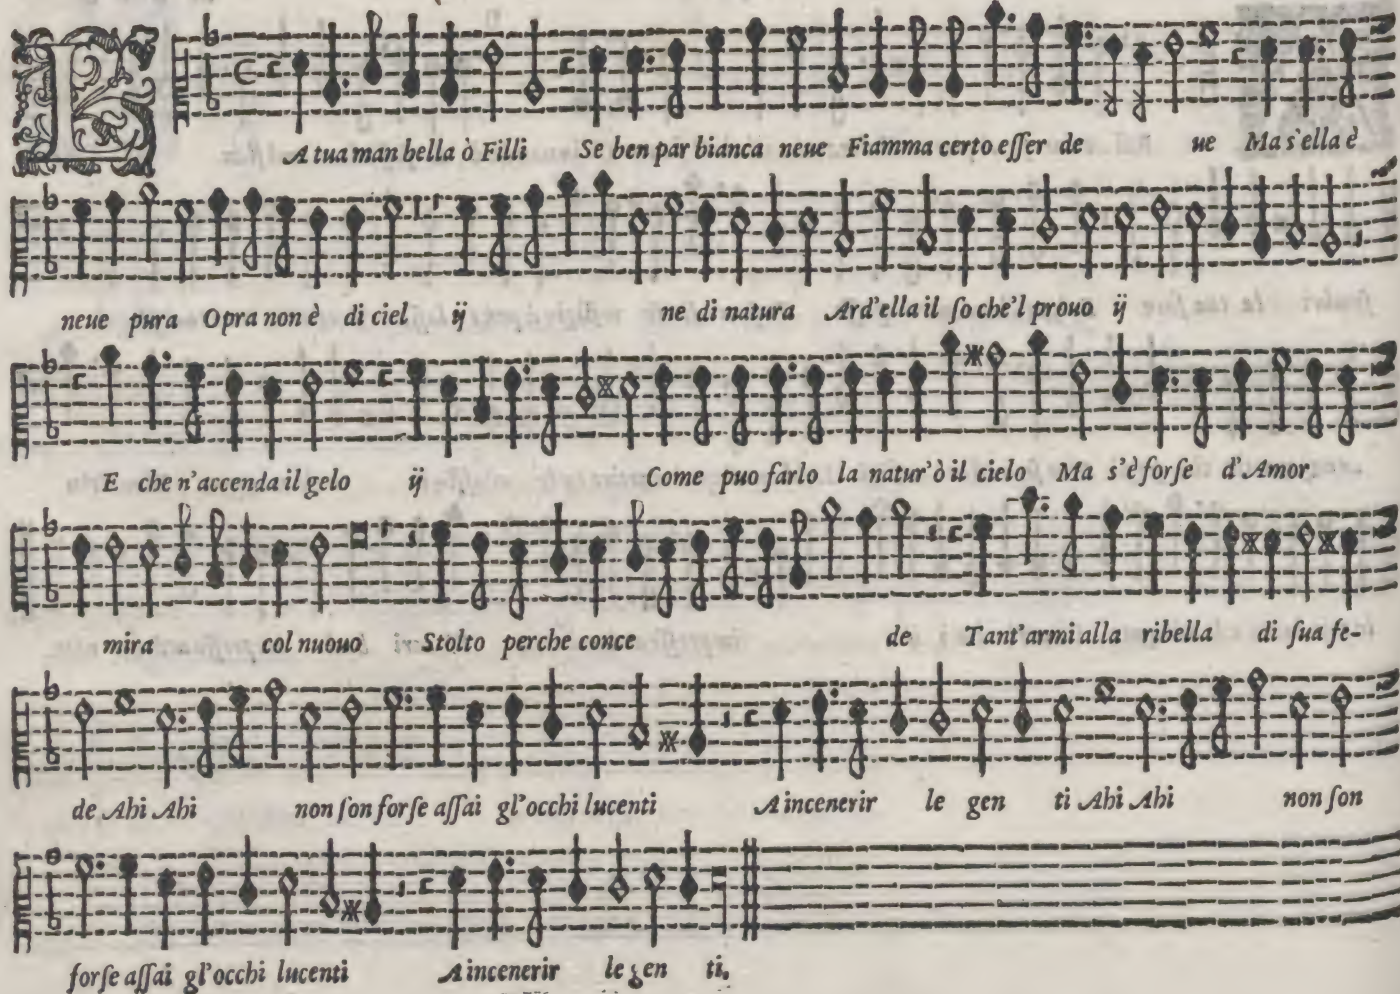 LA tua man bella ò Filli Se ben par bianca neue Fiamma certo eſſer de ue Ma s'ella è
neue pura Opra non è di ciel ij ne di natura Ard'ella il ſo che'l prouo ij
E che n'accenda il gelo ij Come puo farlo la natur'ò il cielo Ma s'è forſe d'Amor
mira col nuouo Stolto perche conce de Tant'armi alla ribella di ſua fe-
de Ahi Ahi non ſon forſe aſſai gl'occhi lucenti A incenerir le gen ti Ahi Ahi non ſon
forſe aſſai gl'occhi lucenti A incenerir le gen ti.